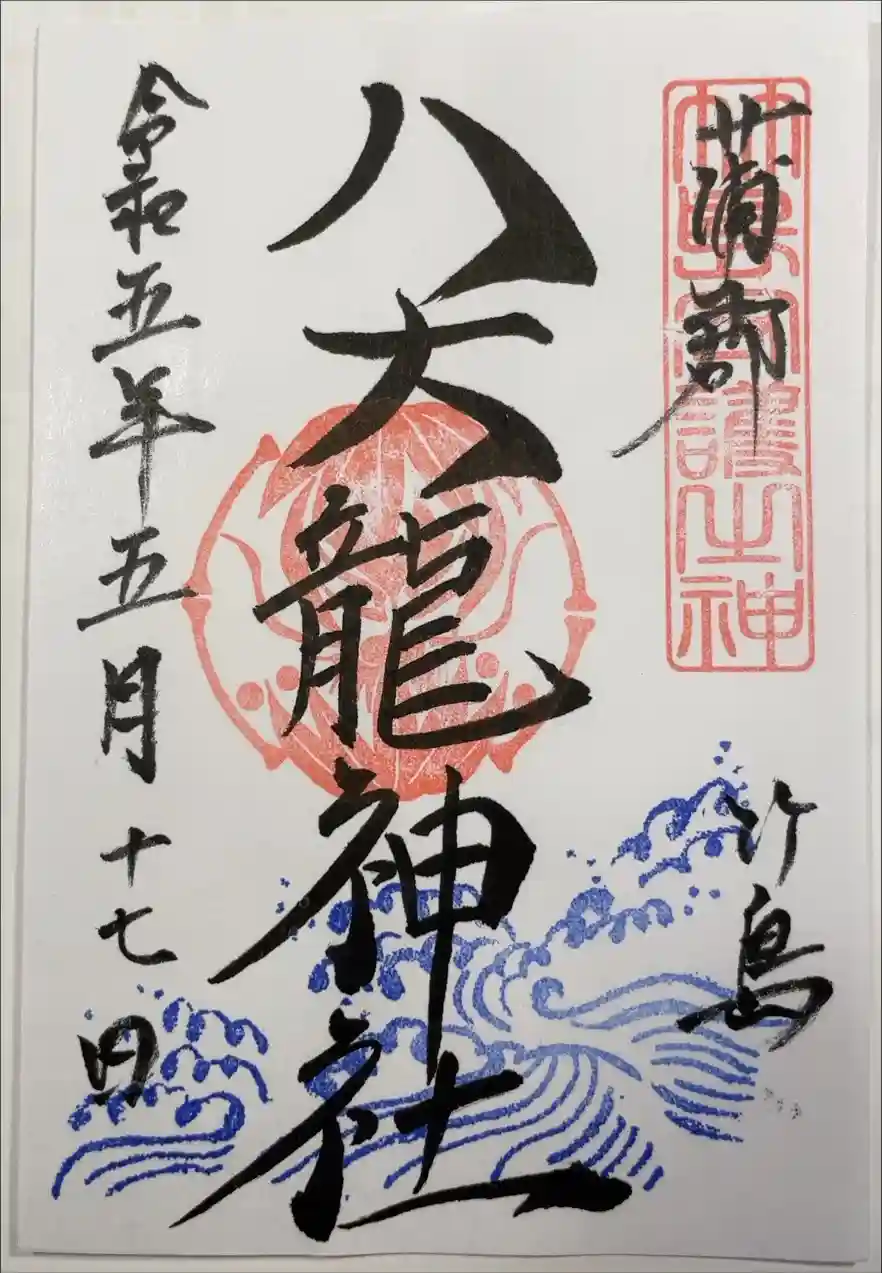 蒲郡
竹島
八大龍神社
令和五年五月十七日
竹島宮護之神社